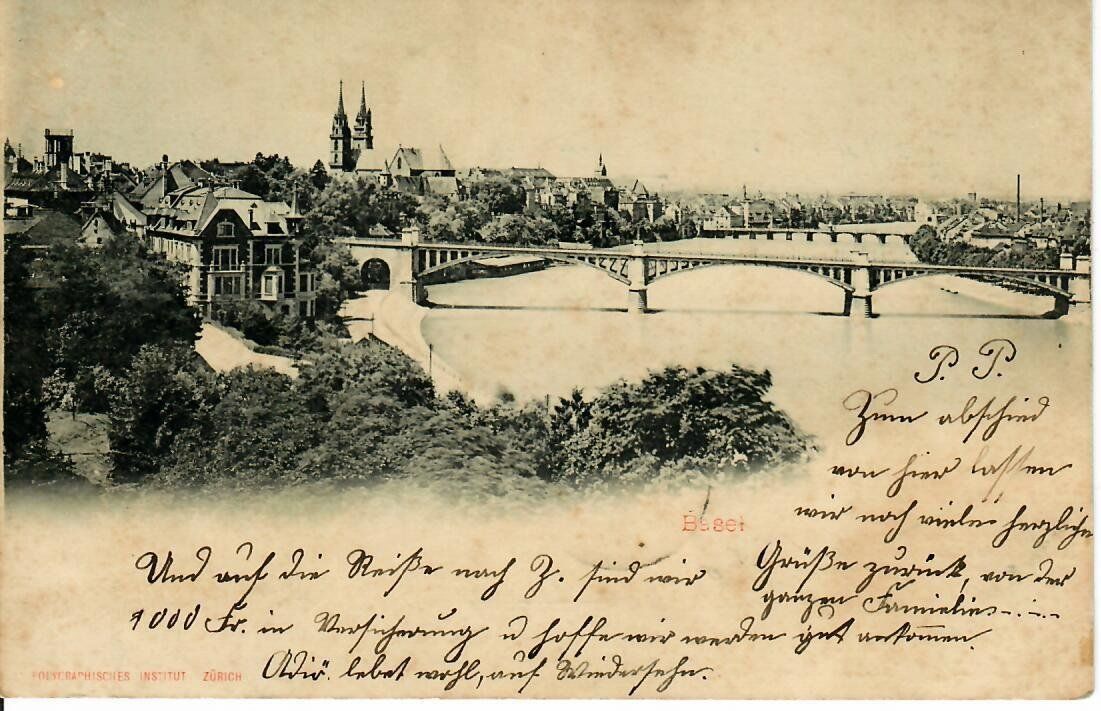 P. P.
Zum abschied
von hier lassen
wir noch viele herzliche
Grüße zurück, von der
ganzen Familie
Basel
Und auf die Reiße nach Z. sind wir
1000 Fr. in Versicherung u hoffe wir werden gut ankommen.
Adiö. lebet wohl, auf Wiedersehn.
POLYGRAPHISCHES INSTITUT ZÜRICH